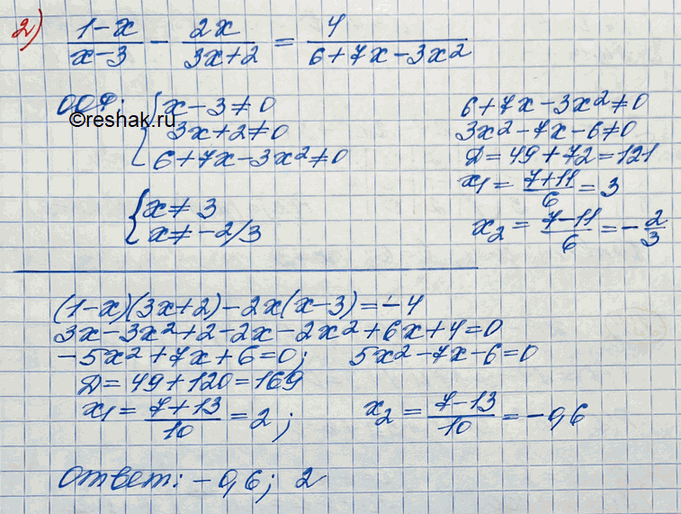 2) (1-x)/(x-3) - 2x/(3x+2) = 4/(6+7x-3x2)
ООФ: { x-3≠0
3x+2≠0
6+7x-3x²≠0
©reshak.ru
{ x≠3
x≠-2/3
6+7x-3x²≠0
3x²-7x-6≠0
Д=49+72=121
x1=(7+11)/6=3
x2=(7-11)/6=-2/3
(1-x)(3x+2)-2x(x-3)=-4
3x-3x²+2-2x-2x²+6x+4=0
-5x²+7x+6=0; 5x²-7x-6=0
Д=49+120=169
x1=(7+13)/10=2; x2=(7-13)/10=-0,6
Ответ: -0,6; 2